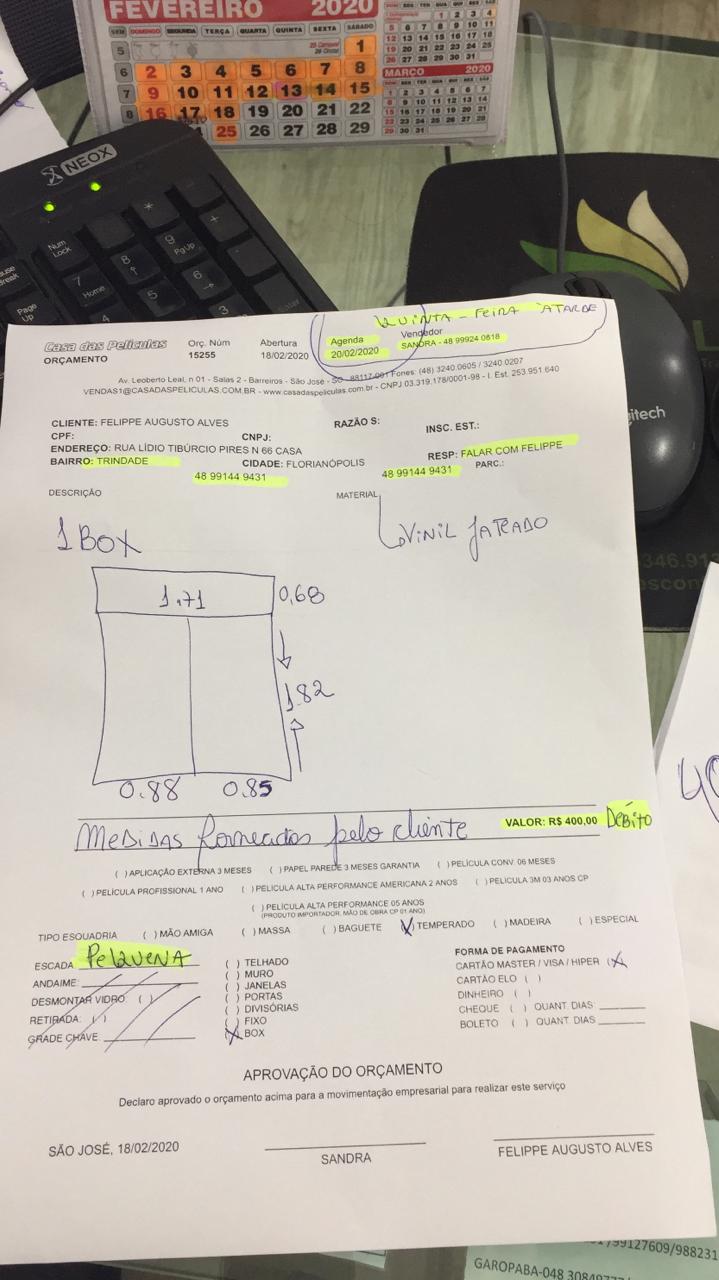 FEVEREIRO 2020
SEM DOMINGO SEGUNDA TERÇA QUARTA QUINTA SEXTA SÁBADO
5 1
6 2 3 4 5 6 7 8
7 9 10 11 12 13 14 15
8 16 17 18 19 20 21 22
25 26 27 28 29
MARÇO 2020
1 2 3 4 5 6 7
8 9 10 11 12 13 14
15 16 17 18 19 20 21
22 23 24 25 26 27 28
29 30 31
NEOX
Num Lock
7 Home
8
9 PgUp
Page Up
4
6
3
QUINTA - FEIRA ATARDE
Casa das Películas
ORÇAMENTO
Orç. Núm
15255
Abertura
18/02/2020
Agenda
20/02/2020
Vendedor
SANDRA - 48 99924 0618
Av. Leoberto Leal, n 01 - Salas 2 - Barreiros - São José - SC 88117-001 Fones: (48) 3240.0605 / 3240.0207
VENDAS1@CASADASPELICULAS.COM.BR - www.casadaspeliculas.com.br - CNPJ 03.319.178/0001-98 - I. Est. 253.951.640
CLIENTE: FELIPPE AUGUSTO ALVES RAZÃO S: INSC. EST.:
CPF: CNPJ:
ENDEREÇO: RUA LÍDIO TIBÚRCIO PIRES N 66 CASA RESP: FALAR COM FELIPPE
BAIRRO: TRINDADE CIDADE: FLORIANÓPOLIS PARC.:
48 99144 9431 48 99144 9431
DESCRIÇÃO MATERIAL
1 BOX VINIL JATEADO
1,71 0,68
1.82
0.88 0.85
MEDIDAS fornecidas pelo cliente VALOR: R$ 400,00 DÉBITO
( ) APLICAÇÃO EXTERNA 3 MESES ( ) PAPEL PAREDE 3 MESES GARANTIA ( ) PELÍCULA CONV. 06 MESES
( ) PELÍCULA PROFISSIONAL 1 ANO ( ) PELÍCULA ALTA PERFORMANCE AMERICANA 2 ANOS ( ) PELÍCULA 3M 03 ANOS CP
( ) PELÍCULA ALTA PERFORMANCE 05 ANOS
(PRODUTO IMPORTADOR. MÃO DE OBRA CP 01 ANO)
TIPO ESQUADRIA ( ) MÃO AMIGA ( ) MASSA ( ) BAGUETE (X) TEMPERADO ( ) MADEIRA ( ) ESPECIAL
ESCADA PEQUENA
ANDAIME:
DESMONTAR VIDRO: ( )
RETIRADA: ( )
GRADE CHAVE:
( ) TELHADO
( ) MURO
( ) JANELAS
( ) PORTAS
( ) DIVISÓRIAS
( ) FIXO
(X) BOX
FORMA DE PAGAMENTO
CARTÃO MASTER / VISA / HIPER (X)
CARTÃO ELO ( )
DINHEIRO ( )
CHEQUE ( ) QUANT. DIAS:
BOLETO ( ) QUANT. DIAS
APROVAÇÃO DO ORÇAMENTO
Declaro aprovado o orçamento acima para a movimentação empresarial para realizar este serviço
SÃO JOSÉ, 18/02/2020
SANDRA
FELIPPE AUGUSTO ALVES
/99127609/988231
GAROPABA-048